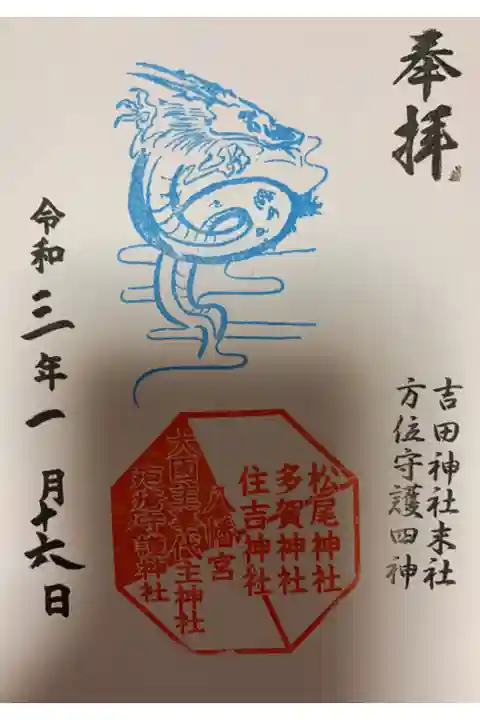 奉拝
吉田神社末社
方位守護四神
松尾神社
多賀神社
住吉神社
八幡宮
大国主事代主神社
疱瘡守護神社
令和三年一月十六日